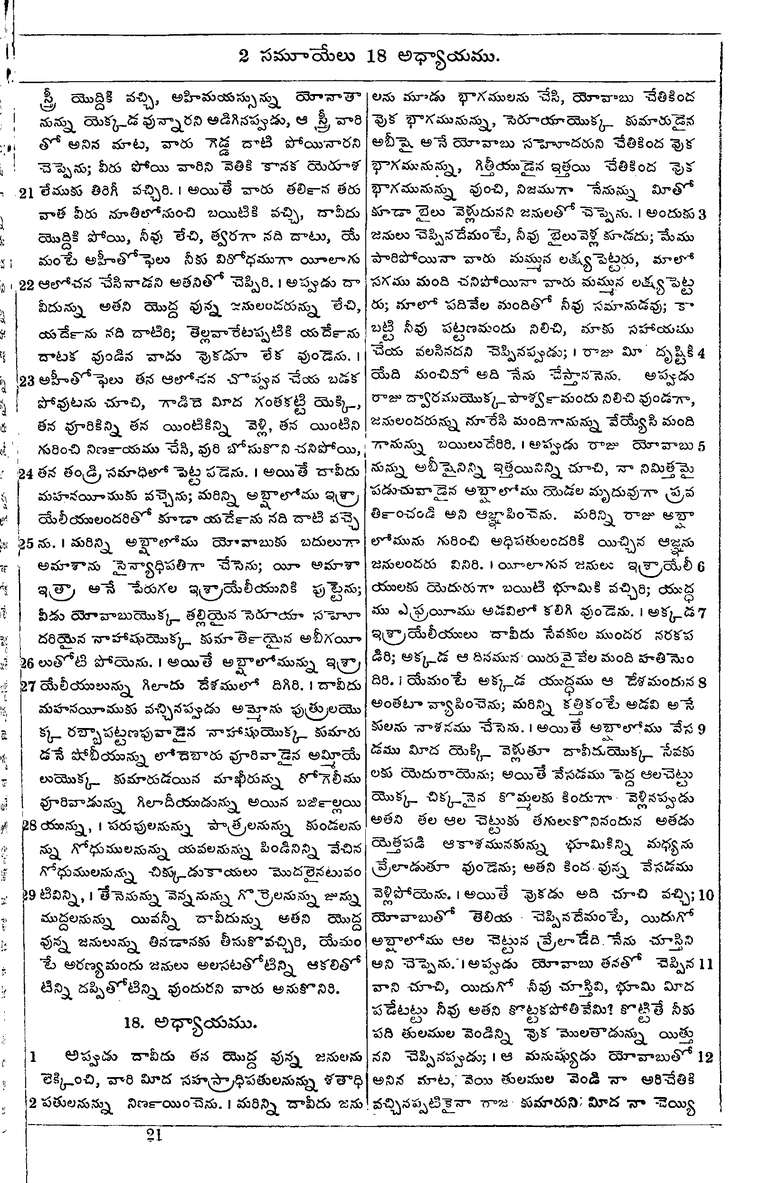 2 సమూయేలు 18 అధ్యాయము.
స్త్రీ యొద్దికి వచ్చి, అహిమయస్సున్ను యోనాతా
నున్ను యెక్కడ వున్నారని అడిగినప్పుడు, ఆ స్త్రీ వారి
తో అనిన మాట, వారు గెడ్డ దాటి పోయినారని
చెప్పెను; వీరు పోయి వారిని వెతికి కానక యెరూశ
21 లేముకు తిరిగీ వచ్చిరి. । అయితే వారు తర్లిన తరు
వాత వీరు నూతిలోనుంచి బయిటికి వచ్చి, దావీదు
యొద్దికి పోయి, నీవు లేచి, త్వరగా నది దాటు, యే
మంటే అహీతోఫెలు నీకు విరోధముగా యీలాగు
22 ఆలోచన చేసినాడని అతనితో చెప్పిరి. । అప్పుడు దా
వీదున్ను అతని యొద్ద వున్న జనులందరున్ను లేచి,
యర్దేను నది దాటిరి; తెల్లవారేటప్పటికి యర్దేను
దాటక వుండిన వాడు వొకడూ లేక వుండెను. ।
23 అహీతోఫెలు తన ఆలోచన చొప్పున చేయ బడక
పోవుటను చూచి, గాడిదె మీద గంతకట్టి యెక్కి,
తన వూరికిన్ని తన యింటికిన్ని వెళ్లి, తన యింటిని
గురించి నిర్ణయము చేసి, వురి బోసుకొని చనిపోయి,
24 తన తండ్రి సమాధిలో పెట్ట పడెను. । అయితే దావీదు
మహనయీముకు వచ్చెను; మరిన్ని అబ్షాలోము ఇశ్రా
యేలీయులందరితో కూడా యర్దేను నది దాటి వచ్చె
25 ను. । మరిన్ని అబ్షాలోము యోవాబుకు బదులుగా
అమాశాను సైన్యాధిపతిగా చేసెను; యీ అమాశా
ఇత్రా అనే పేరుగల ఇశ్రాయేలీయునికి పుట్టెను;
వీడు యోవాబుయొక్క తల్లియైన సెరూయా సహో
దరియైన నాహాషుయొక్క కుమార్తెయైన అబీగయీ
26 లుతోటి పోయెను. । అయితే అబ్షాలోమున్ను ఇశ్రా
27 యేలీయులున్ను గిలాదు దేశములో దిగిరి. । దావీదు
మహనయీముకు వచ్చినప్పుడు అమ్మోను పుత్రులయొ
క్క రబ్బాపట్టణపువాడైన నాహాషుయొక్క కుమారు
డనే షోబీయున్ను లోదెబారు వూరివాడైన అమ్మీయే
లుయొక్క కుమారుడయిన మాఖీరున్ను రోగెలీము
వూరివాడున్ను గిలాదీయుడున్ను అయిన బర్జిల్లయి
28 యున్ను, । పరుపులనున్ను పాత్రలనున్ను కుండలను
న్ను గోధుములనున్ను యవలనున్ను పిండినిన్ని వేచిన
గోధుములనున్ను చిక్కుడుకాయలు మొదలైనటువం
29 టివిన్ని, । తేనెనున్ను వెన్ననున్ను గొర్రెలనున్ను జున్ను
ముద్దలనున్ను యివన్నీ దావీదున్ను అతని యొద్ద
వున్న జనులున్ను తినడానకు తీసుకొవచ్చిరి, యేమం
టే అరణ్యమందు జనులు అలసటతోటిన్ని ఆకలితో
టిన్ని దప్పితోటిన్ని వుందురని వారు అనుకొనిరి.
18. అధ్యాయము.
1 అప్పుడు దావీదు తన యొద్ద వున్న జనులను
లెక్కించి, వారి మీద సహస్రాధిపతులనున్ను శతాధి
2 పతులనున్ను నిర్ణయించెను. । మరిన్ని దావీదు జను
లను మూడు భాగములను చేసి, యోవాబు చేతికింద
వొక భాగమునున్ను, సెరూయాయొక్క కుమారుడైన
అబీషై అనే యోవాబు సహోదరుని చేతికింద వొక
భాగమునున్ను, గిత్తీయుడైన ఇత్తయి చేతికింద వొక
భాగమునున్ను వుంచి, నిజముగా నేనున్ను మీతో
కూడా బైలు వెళ్లుదునని జనులతో చెప్పెను. । అందుకు 3
జనులు చెప్పినదేమంటే, నీవు బైలువెళ్ల కూడదు; మేము
పారిపోయినా వారు మమ్మున లక్ష్యపెట్టరు, మాలో
సగము మంది చనిపోయినా వారు మమ్మున లక్ష్యపెట్ట
రు; మాలో పదివేల మందితో నీవు సమానుడవు; కా
బట్టి నీవు పట్టణమందు నిలిచి, మాకు సహాయము
చేయ వలసినదని చెప్పినప్పుడు; । రాజు మీ దృష్టికి 4
యేది మంచిదో అది నేను చేస్తాననెను. అప్పుడు
రాజు ద్వారముయొక్క పార్శ్వమందు నిలిచి వుండగా,
జనులందరున్ను నూరేసి మందిగానున్ను వేయ్యేసి మంది
గానున్ను బయిలుదేరిరి. । అప్పుడు రాజు యోవాబు 5
నున్ను అబీషైనిన్ని ఇత్తయినిన్ని చూచి, నా నిమిత్తమై
పడుచువాడైన అబ్షాలోము యెడల మృదువుగా ప్రవ
ర్తించండి అని ఆజ్ఞాపించెను. మరిన్ని రాజు అబ్షా
లోమును గురించి అధిపతులందరికి యిచ్చిన ఆజ్ఞను
జనులందరు వినిరి. । యీలాగున జనులు ఇశ్రాయేలీ 6
యులకు యెదురుగా బయిటి భూమికి వచ్చిరి; యుద్ధ
ము ఎఫ్రయీము అడవిలో కలిగి వుండెను. । అక్కడ 7
ఇశ్రాయేలీయులు దావీదు సేవకుల ముందర నరకప
డిరి; అక్కడ ఆ దినమున యిరువైవేల మంది హతిమం
దిరి. । యేమంటే అక్కడ యుద్ధము ఆ దేశమందున 8
అంతటా వ్యాపించెను; మరిన్ని కత్తికంటే అడవి అనే
కులను నాశనము చేసెను. । అయితే అబ్షాలోము వేస 9
డము మీద యెక్కి వెళ్లుతూ దావీదుయొక్క సేవకు
లకు యెదురాయెను; అయితే వేసడము పెద్ద ఆలచెట్టు
యొక్క చిక్కనైన కొమ్మలకు కిందుగా వెళ్లినప్పుడు
అతని తల ఆల చెట్టుకు తగులుకొనినందున అతడు
యెత్తపడి ఆకాశమునకున్ను భూమికిన్ని మధ్యను
వ్రేలాడుతూ వుండెను; అతని కింద వున్న వేసడము
వెళ్లిపోయెను. । అయితే వొకడు అది చూచి వచ్చి; 10
యోవాబుతో తెలియ చెప్పినదేమంటే, యిదుగో
అబ్షాలోము ఆల చెట్టున వ్రేలాడేది నేను చూస్తిని
అని చెప్పెను. । అప్పుడు యోవాబు తనతో చెప్పిన 11
వాని చూచి, యిదుగో నీవు చూస్తివి, భూమి మీద
పడేటట్టు నీవు అతని కొట్టకపోతివేమి? కొట్టితే నీకు
పది తులముల వెండిన్ని వొక మొలతాడున్ను యిత్తు
నని చెప్పినప్పుడు; । ఆ మనుష్యుడు యోవాబుతో 12
అనిన మాట, వెయి తులముల వెండి నా అరిచేతికి
వచ్చినప్పటికైనా రాజ కుమారుని మీద నా చెయ్యి
21